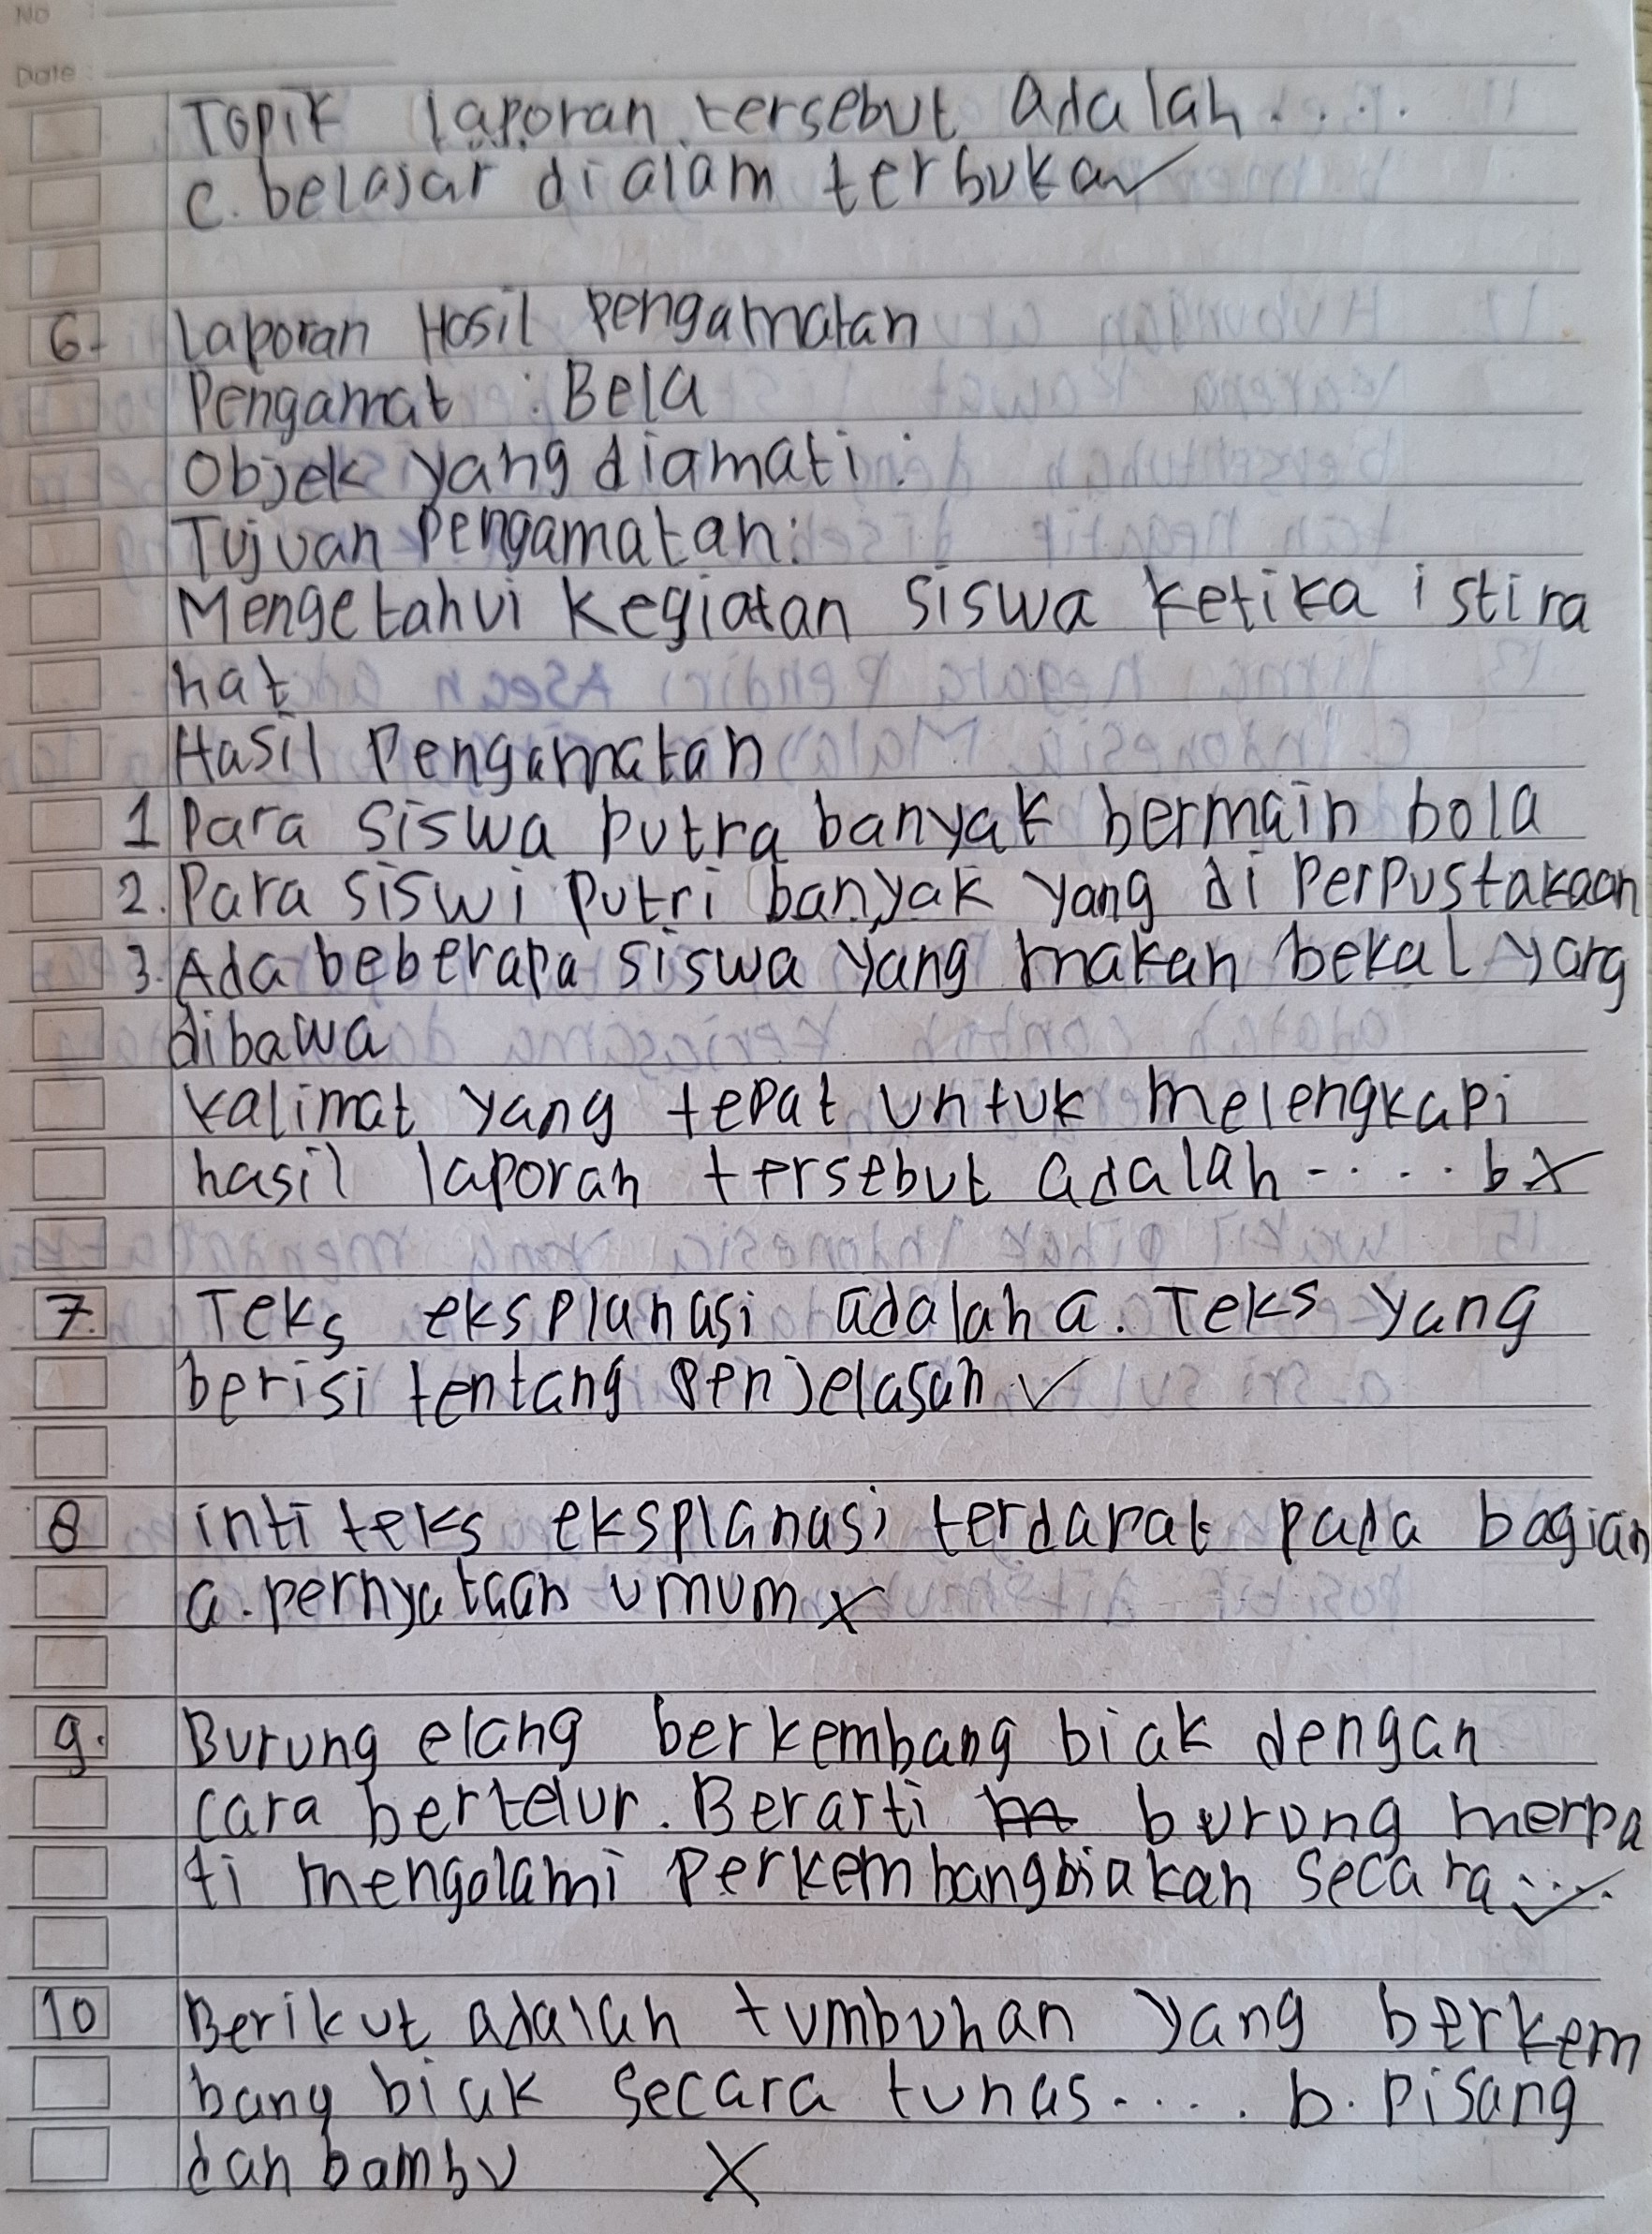 No :
Date :
Topik laporan tersebut adalah....
c. belajar dialam terbuka ✓
6. Laporan Hasil Pengamatan
Pengamat : Bela
Objek yang diamati :
Tujuan Pengamatan:
Mengetahui kegiatan siswa ketika istira
hat
Hasil Pengamatan
1 Para siswa putra banyak bermain bola
2. Para siswi putri banyak yang di Perpustakaan
3. Ada beberapa siswa yang makan bekal yang
dibawa
kalimat yang tepat untuk melengkapi
hasil laporan tersebut adalah ..... b X
7. Teks eksplanasi adalah a. Teks yang
berisi tentang penjelasan ✓
8 inti teks eksplanasi terdapat pada bagian
a. pernyataan umum X
9. Burung elang berkembang biak dengan
cara bertelur. Berarti burung merpa
ti mengalami Perkembangbiakan secara .... ✓
10 Berikut adalah tumbuhan yang berkem
bang biak secara tunas.... b. pisang
dan bambu X